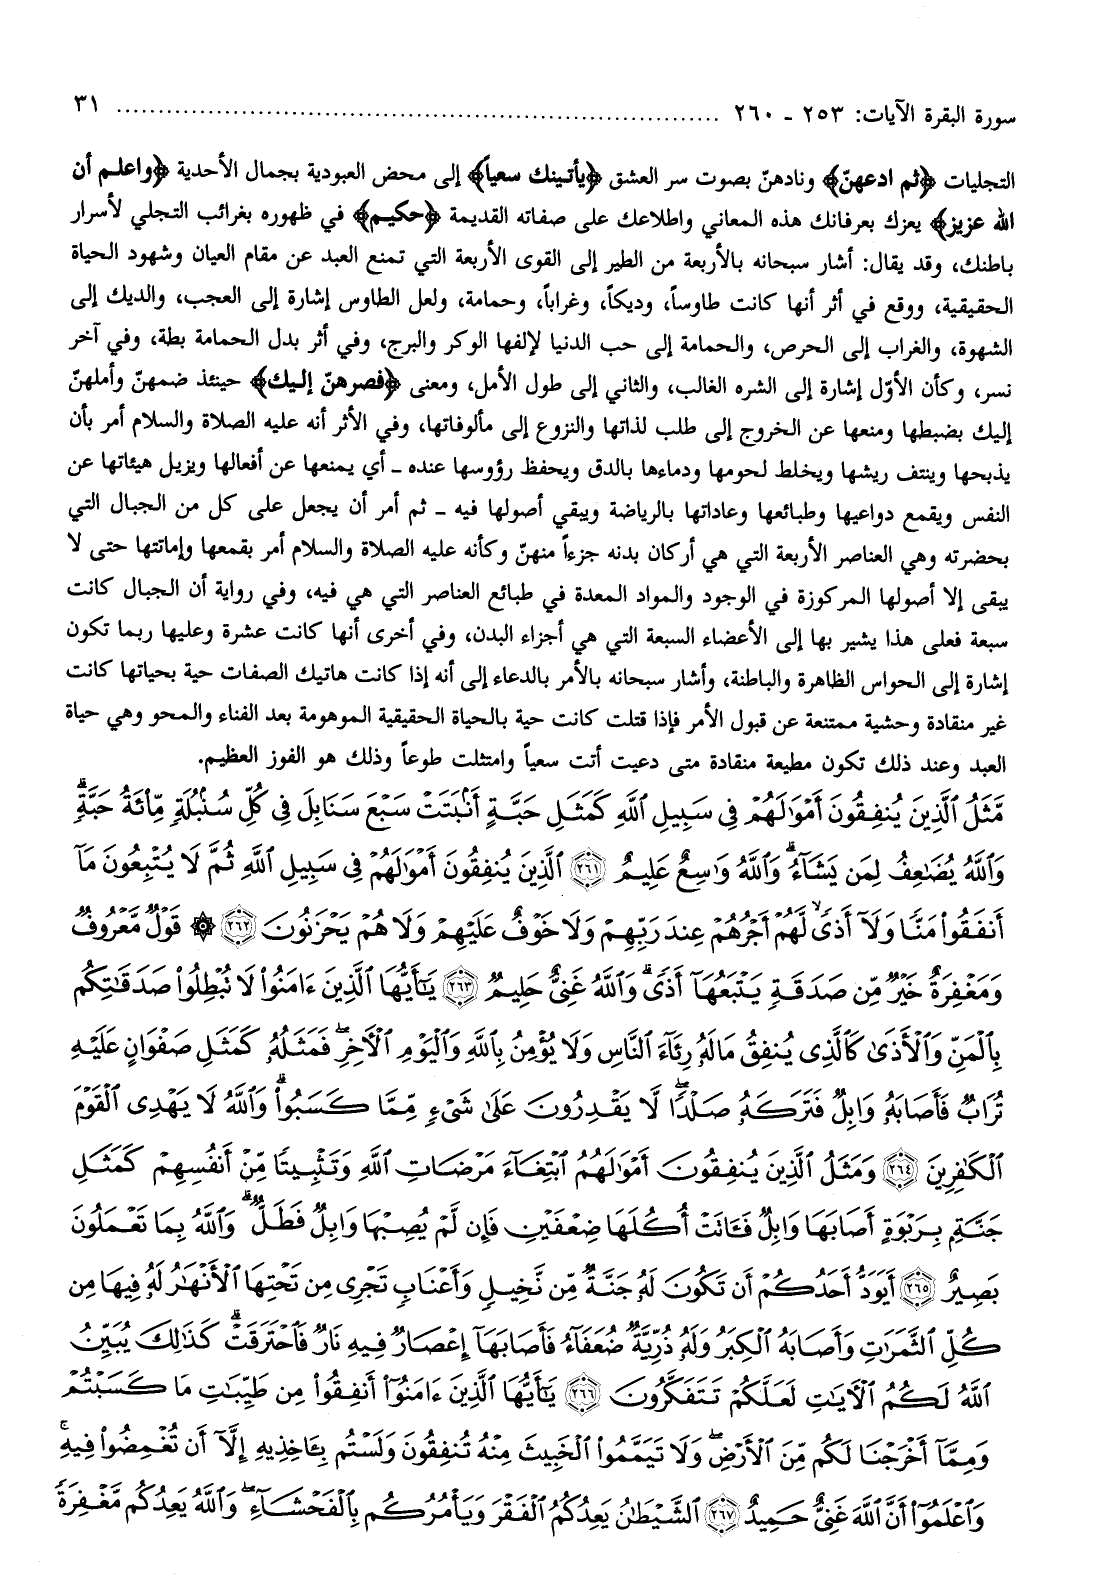 سورة البقرة الآيات: ٢٥٣ - ٢٦٠ ........................................................................ ٣١
التجليات ﴿ثم ادعهنّ﴾ ونادهنّ بصوت سر العشق ﴿يأتينك سعياً﴾ إلى محض العبودية بجمال الأحدية ﴿واعلم أن
الله عزيز﴾ يعزك بعرفانك هذه المعاني واطلاعك على صفاته القديمة ﴿حكيم﴾ في ظهوره بغرائب التجلي لأسرار
باطنك، وقد يقال: أشار سبحانه بالأربعة من الطير إلى القوى الأربعة التي تمنع العبد عن مقام العيان وشهود الحياة
الحقيقية، ووقع في أثر أنها كانت طاوساً، وديكاً، وغراباً، وحمامة، ولعل الطاوس إشارة إلى العجب، والديك إلى
الشهوة، والغراب إلى الحرص، والحمامة إلى حب الدنيا لإلفها الوكر والبرج، وفي أثر بدل الحمامة بطة، وفي آخر
نسر، وكأن الأوّل إشارة إلى الشره الغالب، والثاني إلى طول الأمل، ومعنى ﴿فصرهنّ إليك﴾ حينئذ ضمهنّ وأملهنّ
إليك بضبطها ومنعها عن الخروج إلى طلب لذاتها والنزوع إلى مألوفاتها، وفي الأثر أنه عليه الصلاة والسلام أمر بأن
يذبحها وينتف ريشها ويخلط لحومها ودماءها بالدق ويحفظ رؤوسها عنده - أي يمنعها عن أفعالها ويزيل هيئاتها عن
النفس ويقمع دواعيها وطبائعها وعاداتها بالرياضة ويبقي أصولها فيه - ثم أمر أن يجعل على كل من الجبال التي
بحضرته وهي العناصر الأربعة التي هي أركان بدنه جزءاً منهنّ وكأنه عليه الصلاة والسلام أمر بقمعها وإماتتها حتى لا
يبقى إلا أصولها المركوزة في الوجود والمواد المعدة في طبائع العناصر التي هي فيه، وفي رواية أن الجبال كانت
سبعة فعلى هذا يشير بها إلى الأعضاء السبعة التي هي أجزاء البدن، وفي أخرى أنها كانت عشرة وعليها ربما تكون
إشارة إلى الحواس الظاهرة والباطنة، وأشار سبحانه بالأمر بالدعاء إلى أنه إذا كانت هاتيك الصفات حية بحياتها كانت
غير منقادة وحشية ممتنعة عن قبول الأمر فإذا قتلت كانت حية بالحياة الحقيقية الموهومة بعد الفناء والمحو وهي حياة
العبد وعند ذلك تكون مطيعة منقادة متى دعيت أتت سعياً وامتثلت طوعاً وذلك هو الفوز العظيم.
مَّثَلُ ٱلَّذِينَ يُنفِقُونَ أَمْوَٰلَهُمْ فِى سَبِيلِ ٱللَّهِ كَمَثَلِ حَبَّةٍ أَنۢبَتَتْ سَبْعَ سَنَابِلَ فِى كُلِّ سُنۢبُلَةٍ مِّا۟ئَةُ حَبَّةٍ ۗ
وَٱللَّهُ يُضَٰعِفُ لِمَن يَشَآءُ ۗ وَٱللَّهُ وَٰسِعٌ عَلِيمٌ ﴿٢٦١﴾ ٱلَّذِينَ يُنفِقُونَ أَمْوَٰلَهُمْ فِى سَبِيلِ ٱللَّهِ ثُمَّ لَا يُتْبِعُونَ مَآ
أَنفَقُوا۟ مَنًّا وَلَآ أَذًى ۙ لَّهُمْ أَجْرُهُمْ عِندَ رَبِّهِمْ وَلَا خَوْفٌ عَلَيْهِمْ وَلَا هُمْ يَحْزَنُونَ ﴿٢٦٢﴾ ۞ قَوْلٌ مَّعْرُوفٌ
وَمَغْفِرَةٌ خَيْرٌ مِّن صَدَقَةٍ يَتْبَعُهَآ أَذًى ۗ وَٱللَّهُ غَنِىٌّ حَلِيمٌ ﴿٢٦٣﴾ يَٰٓأَيُّهَا ٱلَّذِينَ ءَامَنُوا۟ لَا تُبْطِلُوا۟ صَدَقَٰتِكُم
بِٱلْمَنِّ وَٱلْأَذَىٰ كَٱلَّذِى يُنفِقُ مَالَهُۥ رِئَآءَ ٱلنَّاسِ وَلَا يُؤْمِنُ بِٱللَّهِ وَٱلْيَوْمِ ٱلْأَخِرِ ۖ فَمَثَلُهُۥ كَمَثَلِ صَفْوَانٍ عَلَيْهِ
تُرَابٌ فَأَصَابَهُۥ وَابِلٌ فَتَرَكَهُۥ صَلْدًا ۖ لَّا يَقْدِرُونَ عَلَىٰ شَىْءٍ مِّمَّا كَسَبُوا۟ ۗ وَٱللَّهُ لَا يَهْدِى ٱلْقَوْمَ
ٱلْكَٰفِرِينَ ﴿٢٦٤﴾ وَمَثَلُ ٱلَّذِينَ يُنفِقُونَ أَمْوَٰلَهُمُ ٱبْتِغَآءَ مَرْضَاتِ ٱللَّهِ وَتَثْبِيتًا مِّنْ أَنفُسِهِمْ كَمَثَلِ
جَنَّةٍۭ بِرَبْوَةٍ أَصَابَهَا وَابِلٌ فَـَٔاتَتْ أُكُلَهَا ضِعْفَيْنِ فَإِن لَّمْ يُصِبْهَا وَابِلٌ فَطَلٌّ ۗ وَٱللَّهُ بِمَا تَعْمَلُونَ
بَصِيرٌ ﴿٢٦٥﴾ أَيَوَدُّ أَحَدُكُمْ أَن تَكُونَ لَهُۥ جَنَّةٌ مِّن نَّخِيلٍ وَأَعْنَابٍ تَجْرِى مِن تَحْتِهَا ٱلْأَنْهَٰرُ لَهُۥ فِيهَا مِن
كُلِّ ٱلثَّمَرَٰتِ وَأَصَابَهُ ٱلْكِبَرُ وَلَهُۥ ذُرِّيَّةٌ ضُعَفَآءُ فَأَصَابَهَآ إِعْصَارٌ فِيهِ نَارٌ فَٱحْتَرَقَتْ ۗ كَذَٰلِكَ يُبَيِّنُ
ٱللَّهُ لَكُمُ ٱلْأَيَٰتِ لَعَلَّكُمْ تَتَفَكَّرُونَ ﴿٢٦٦﴾ يَٰٓأَيُّهَا ٱلَّذِينَ ءَامَنُوٓا۟ أَنفِقُوا۟ مِن طَيِّبَٰتِ مَا كَسَبْتُمْ
وَمِمَّآ أَخْرَجْنَا لَكُم مِّنَ ٱلْأَرْضِ ۖ وَلَا تَيَمَّمُوا۟ ٱلْخَبِيثَ مِنْهُ تُنفِقُونَ وَلَسْتُم بِـَٔاخِذِيهِ إِلَّآ أَن تُغْمِضُوا۟ فِيهِ ۚ
وَٱعْلَمُوٓا۟ أَنَّ ٱللَّهَ غَنِىٌّ حَمِيدٌ ﴿٢٦٧﴾ ٱلشَّيْطَٰنُ يَعِدُكُمُ ٱلْفَقْرَ وَيَأْمُرُكُم بِٱلْفَحْشَآءِ ۖ وَٱللَّهُ يَعِدُكُم مَّغْفِرَةً